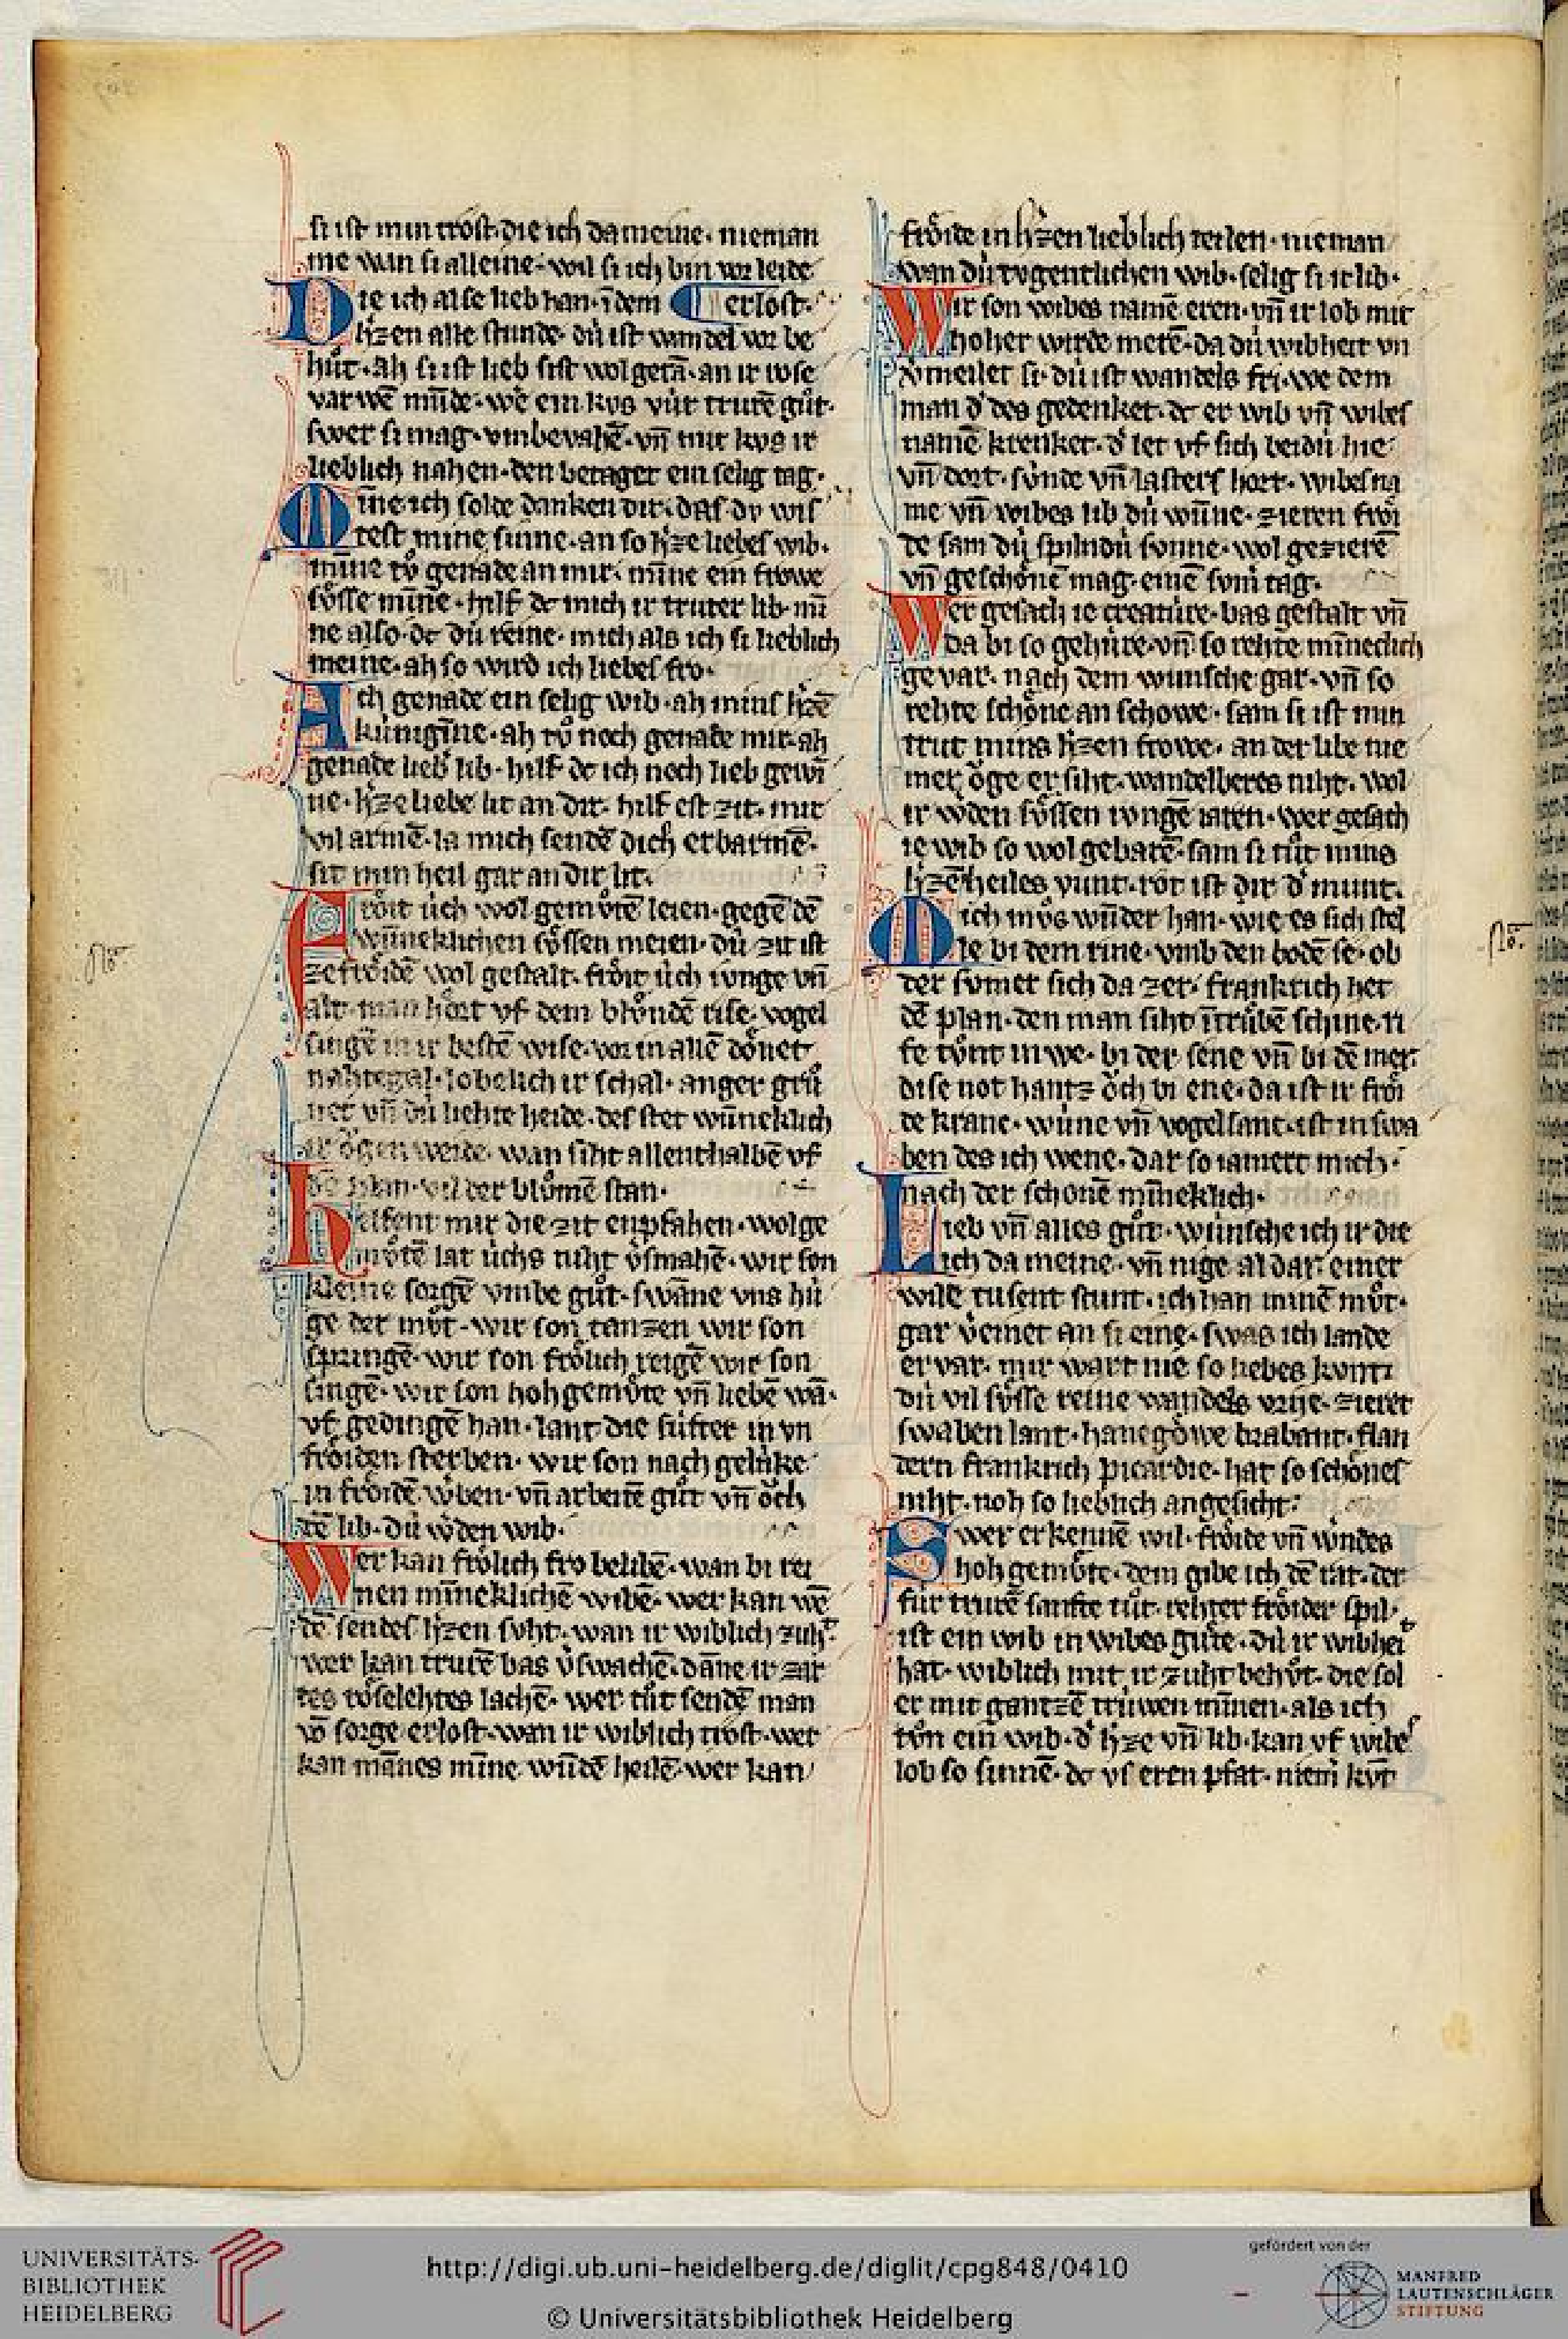 si ist min trost· die ich da meine· nieman
me wan si alleine· wil si ich bin vor leide
Die ich alse lieb han· ī dem erlost·
h'zen alle stunde· dú ist wandel vor be
hůt· ah si ist lieb sist wol getā· an ir rose
var wē mūde· we ein kus vúr trurē gůt·
swer si mag· vmbevahē· vn̄ mit kus ir
lieblich nahen· den betaget ein selig tag·
Mine ich solde danken dir· das du wis
test mine sinne· an so h'ze liebes wib·
mīne tů genade an mir· mīne ein frowe
sůsse mīne· hilf dc mich ir truter lib· mī
ne also· dc dú reine· mich als ich si lieblich
meine· ah so wird ich liebes fro·
Ach genade ein selig wib· ah mins h'zē
kúnigīne· ah tů noch genade mir· ah
genade lieb' lib· hilf dc ich noch lieb gewī
ne· h'ze liebe lit an dir· hilf est zit· mir
vil armē· la mich sendē dich erbarmē·
sit min heil gar an dir lit·
Fröit úch wol gemůtē leien· gegē dē
wūneklichen sůssen meien· dú zit ist
ze fröidē wol gestalt· fröit úch iunge vn̄
alt· man hört vf dem blůndē rise· vogel
singē in ir bestē wise· vor in allē dönet
nahtegal· lobelich ir schal· anger grů
net vn̄ dú liehte heide· des stet wūneklich
ir ögen weide· wan siht allenthalbē vf
dē plan· vil der blůmē stan·
Helfent mir die zit enpfahen· wol ge
můtē lat úchs niht v'smahē· wir son
kleine sorgē vmbe gůt· swāne vns hú
ge der můt· wir son tanzen wir son
springē· wir son frölich reigē wir son
singē· wir son hoh gemůte vn̄ liebē wā·
vf gedingē han· lant die súfter in vn
fröiden sterben· wir son nach gelúke
in fröidē w'ben· vn̄ arbeitē gůt vn̄ öch
dē lib· dú w'den wib·
Wer kan frölich fro belibē· wan bi rei
nen mīneklichē wibē· wer kan wē
dē sendes h'zen suht· wan ir wiblich zuht
wer kan trurē bas v'swachē· dāne ir zar
tes röselehtes lachē· wer tůt sendē man
vō sorge erlost· wan ir wiblich trost· wer
kan mānes mīne wūdē heilē· wer kan
fröide in h'zen lieblich teilen· nieman
wan dú tugentlichen wib· selig si ir lib·
Wir son wibes namē eren· vn̄ ir lob mit
hoher wirde merē· da dú wibheit vn
v'meilet si· dú ist wandels fri· we dem
man d' des gedenket· dc er wib vn̄ wibes
namē krenket· d' let vf sich beidú hie
vn̄ dort· súnde vn̄ lasters hort· wibes na
me vn̄ wibes lib dú wūne· zieren fröi
de sam dú spilndú sunne· wol gezierē
vn̄ geschönē mag· einē sum' tag·
Wer gesach ie creatúre· bas gestalt vn̄
da bi so gehúre· vn̄ so rehte mīneclich
gevar· nach dem wunsche gar· vn̄ so
rehte schöne an schowe· sam si ist min
trut mins h'zen frowe· an der libe nie
mer öge er siht· wandelberes niht· wol
ir w'den sůssen iungē iaren· wer gesach
ie wib so wol gebarē· sam si tůt mins
h'zē heiles vunt· rot ist dir d' munt·
Mich můs wūder han· wie es sich stel
le bi dem rine· vmb den bodē se· ob
der sumer sich da zer· frankrich het
dē plan· den man siht ī trůbē schine· ri
fe tůnt in we· bi der sene vn̄ bi dē mer·
dise not hantz öch bi ene· da ist ir fröi
de krank· wūne vn̄ vogelsanc· ist in swa
ben des ich wene· dar so iamert mich·
nach der schonē mīneklich·
Lieb vn̄ alles gůt· wúnsche ich ir die
ich da meine· vn̄ nige al dar· einer
wile tusent stunt· ich han minē můt·
gar v'einet an si eine· swas ich lande
ervar· mir wart nie so liebes kunt·
dú vil sůsse reine wandels vrie· zieret
swaben lant· hanegöwe brabant· flan
dern frankrich picardie· hat so schönes
niht· noh so lieblich angesicht·
Swer erkennē wil· fröide vn̄ w'ndes
hoh gemůte· dem gibe ich dē rat· der
fúr trurē sanfte tůt· rehter fröider spil·
ist ein wib in wibes gůte· dú ir wibheit
hat· wiblich mit ir zuht behůt· die sol
er mit gantzē trúwen mīnen· als ich
tůn ein wib· d' h'ze vn̄ lib· kan vf wibes
lob so sinnē· dc vf eren pfat· niem' kumt
UNIVERSITÄTS-
BIBLIOTHEK
HEIDELBERG
http://digi.ub.uni-heidelberg.de/diglit/cpg848/0410
© Universitätsbibliothek Heidelberg
gefördert von der
MANFRED
LAUTENSCHLÄGER
STIFTUNG